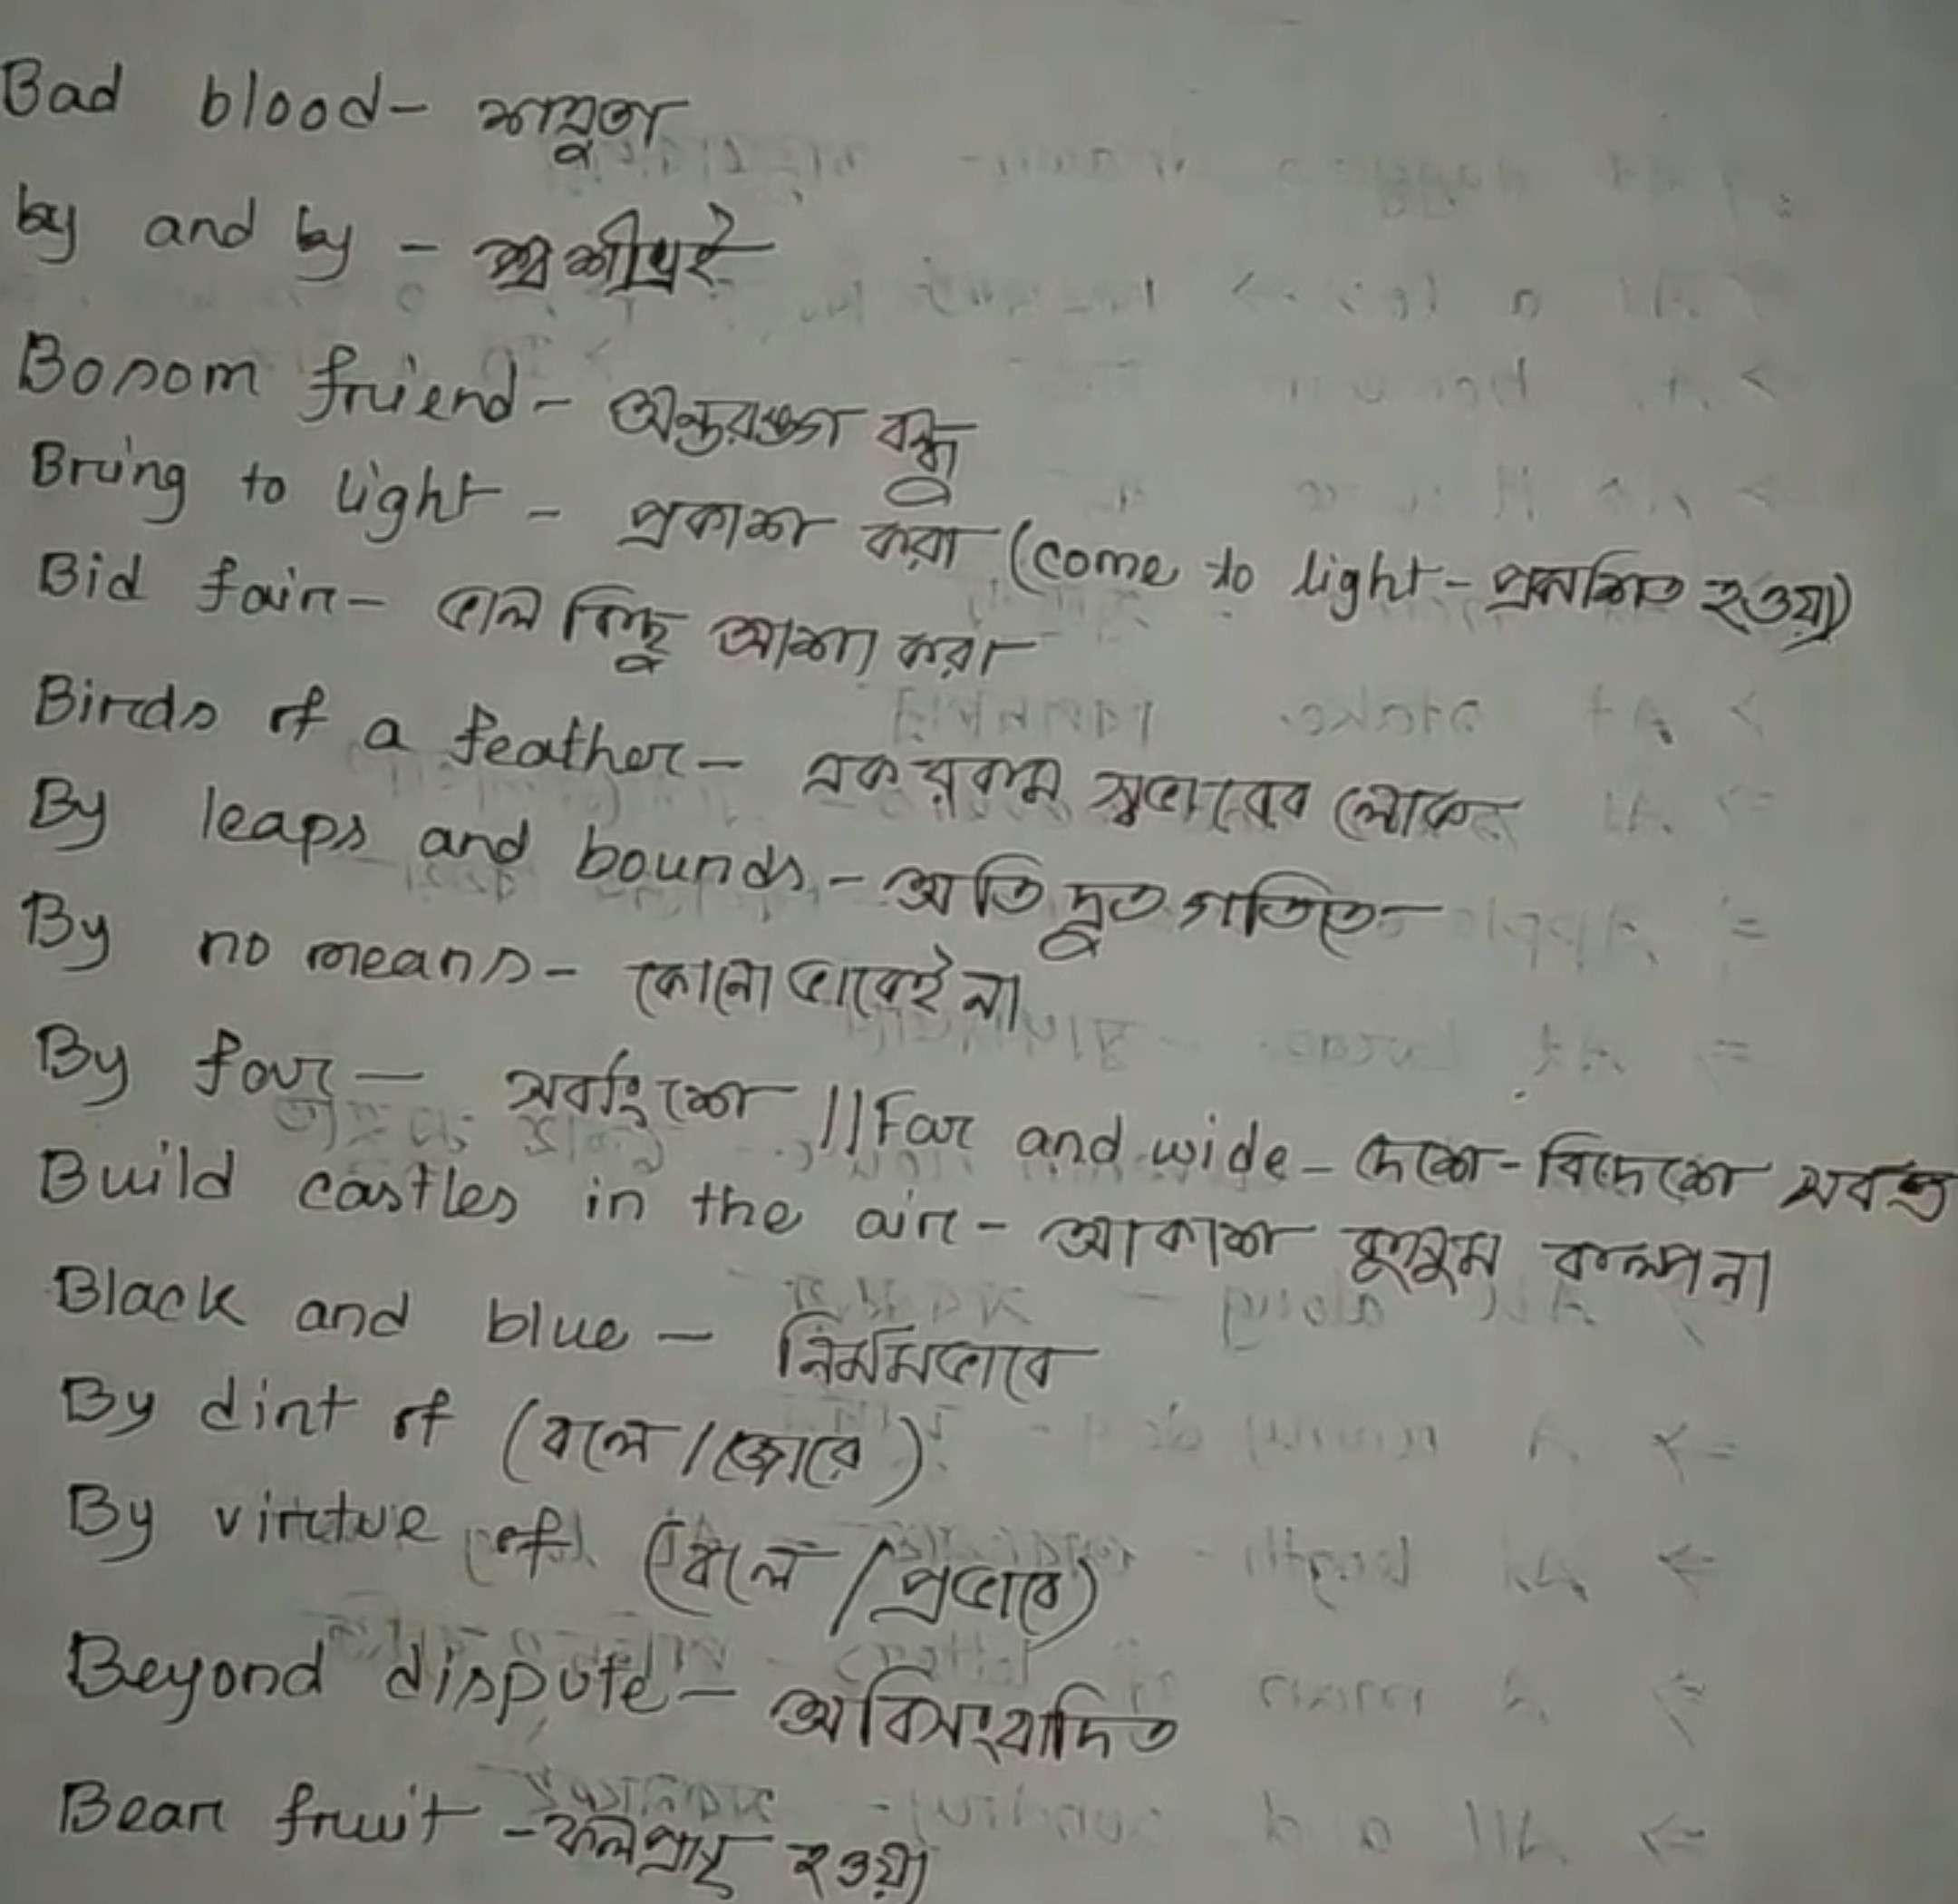 Bad blood- শত্রুতা
by and by - শীঘ্রই
Bosom friend- অন্তরঙ্গ বন্ধু
Bring to light - প্রকাশ করা (come to light- প্রকাশিত হওয়া)
Bid fair- ভাল কিছু আশা করা
Birds of a feather- একরকম স্বভাবের লোক
By leaps and bounds,- অতি দ্রুত গতিতে
By no means- কোনো ভাবেই না
By far- সর্বাংশে ||Far and wide- দেশে-বিদেশে সর্বত্র
Build castles in the air- আকাশ কুসুম কল্পনা
Black and blue - নির্মমভাবে
By dint of (বলে/জোরে)
By virtue of (বলে/প্রভাবে)
Beyond dispute- অবিসংবাদিত
Bear fruit - ফলপ্রসূ হওয়া